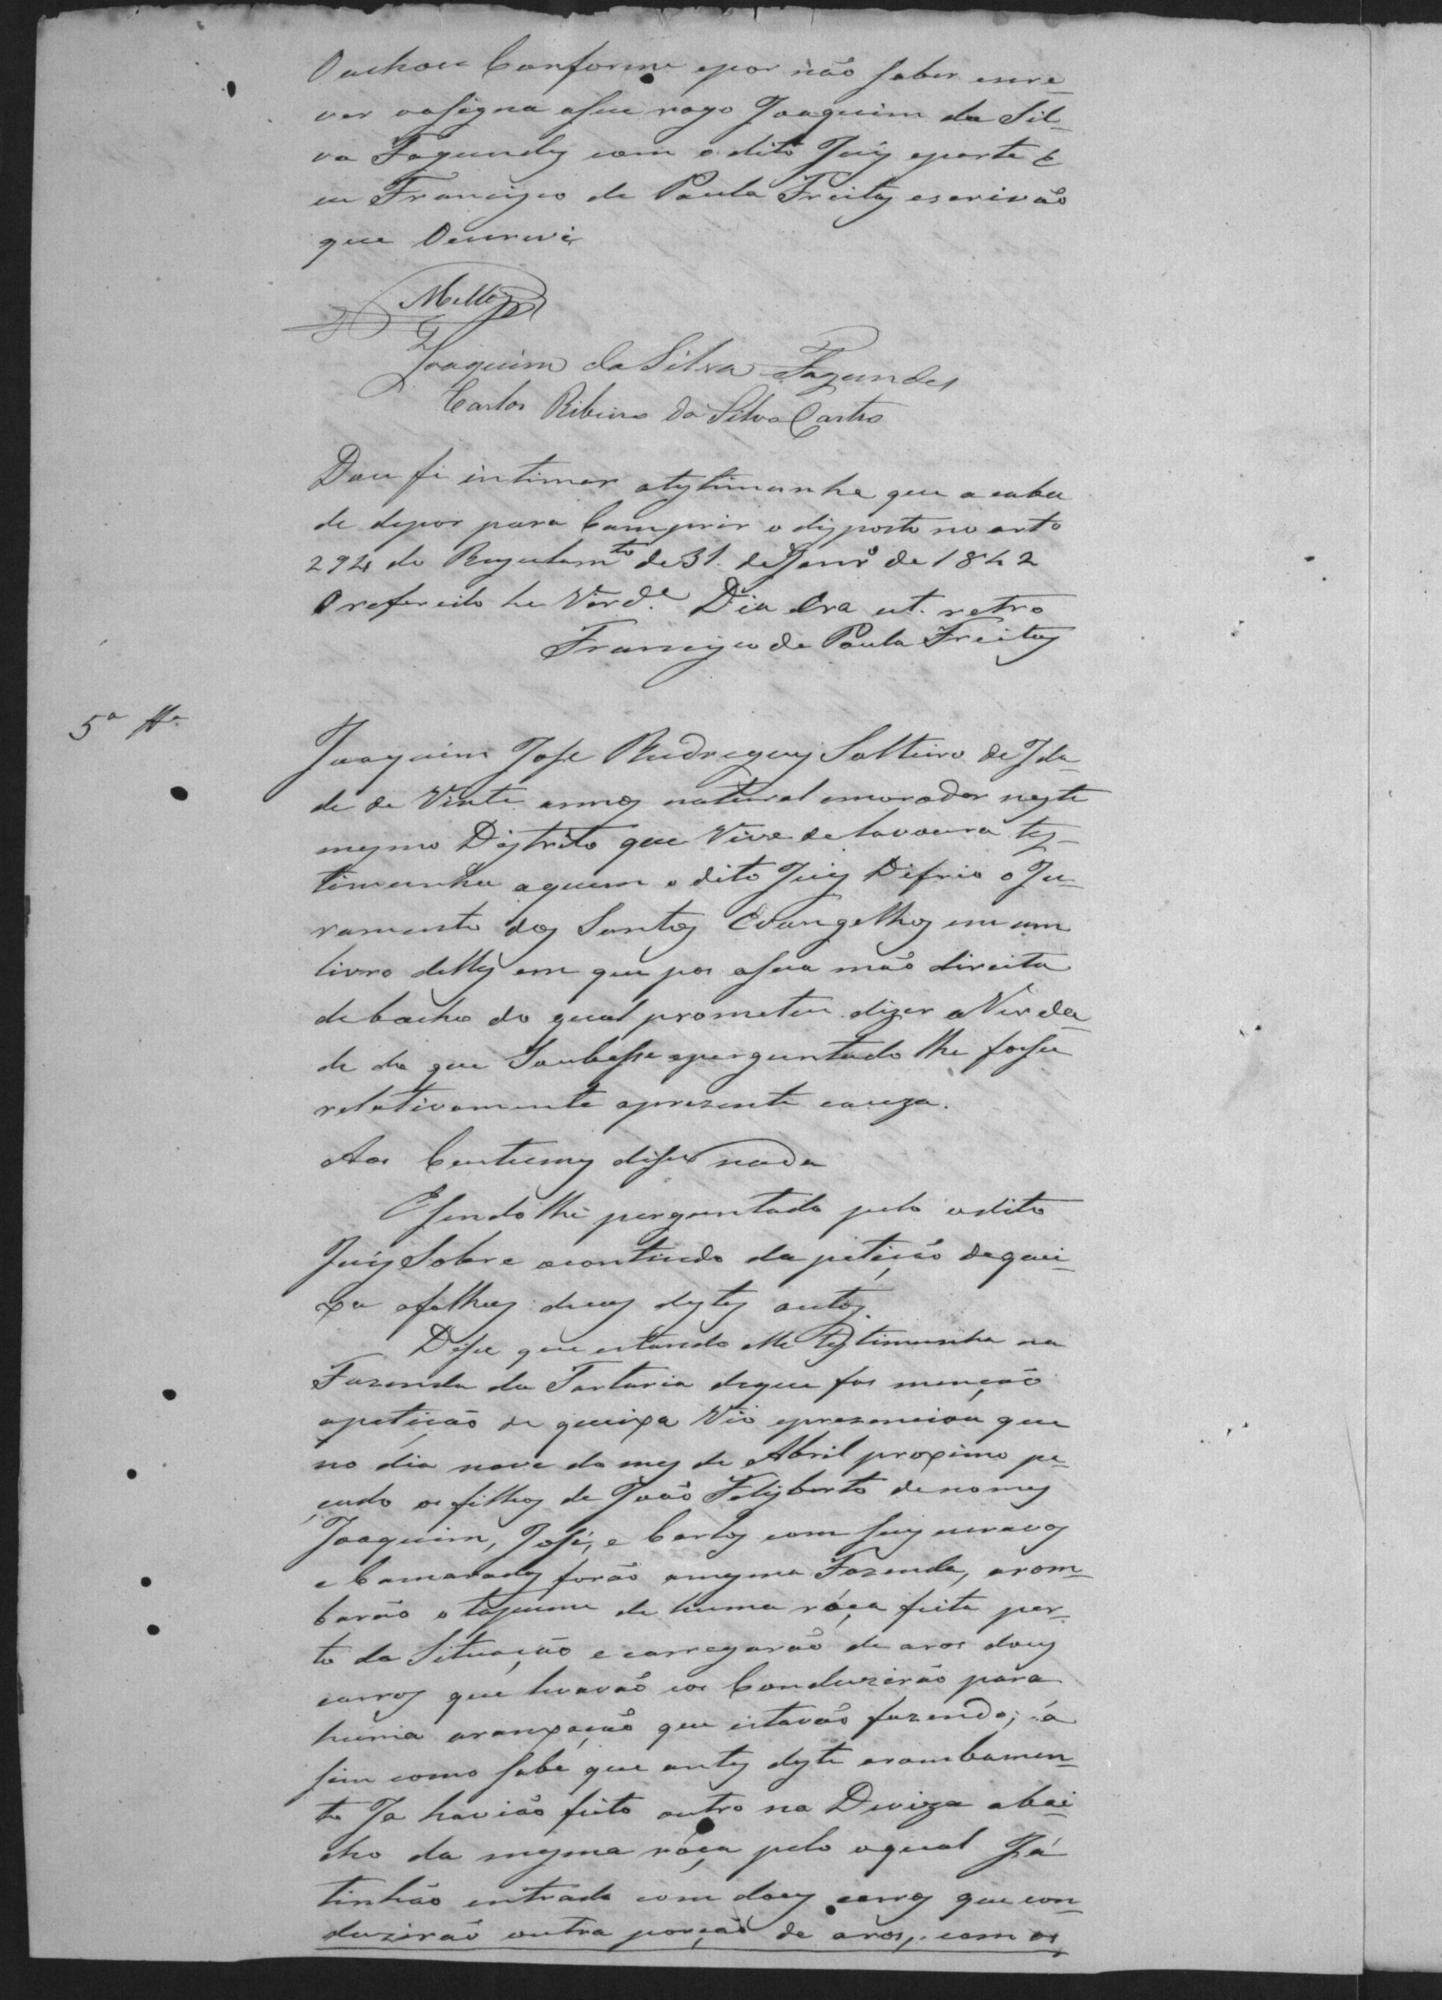 O achou Conforme epor não saber escre-
ver asigna aseu rogo Joaquim da Sil-
va Fagundes com o dito Juis eparte E
eu Francisco de Paula Freitas escrivão
que O escrevi
Mello
Joaquim da Silva Fagundes
Carlos Ribeiro da Silva Castro
Dou fé intimar atestimunha que acaba
de depor para Comprir o disposto no arto
294 do Regulamto de 31 de Janro de 1842
O referido he Verde. Dia Era ut. retro
Francisco de Paula Freitas
5ª tta
Joaquim Jose Rudregues Solteiro de Ida-
de de Vinte annos natural emorador neste
mesmo Destrito que Vive de lavoura tes-
timunha aquem o dito Juis Difrio o Ju-
ramento dos Santos Evangelhos em um
livro delles em que pos asua mão direita
debacho do qual prometeu dizer a Verda-
de do que Soubesse eperguntado lhe fosse
relativamente apresente cauza.
Aos Custumes dise nada
Esendo lhe perguntado pelo o dito
Juis Sobre o contiudo da petição dequei-
xa afolhas duas destes autos.
Dise que estando elle testimunha na
Fazenda da Tartaria deque fas menção
apetição de queixa Vio epresenciou que
no dia nove do mes de Abril proximo pa-
çado os filhos de João Felisberto denomes
Joaquim, José, e Carlos com seus escravos
e Camaradas forão amesma Fazenda, arom-
barão o tapume de huma róça feita per-
to da Situação e carregarão de aros dous
carros que levavão eos Conduzirão para
huma aranxação que estavão fazendo; á
sim como sabe que antes deste arombamen-
to Ja havião feito outro na Deviza abai-
cho da mesma róça pelo oqual Já
tinhão entrado com dous carros que con-
duzirão outra porção de aros, com os